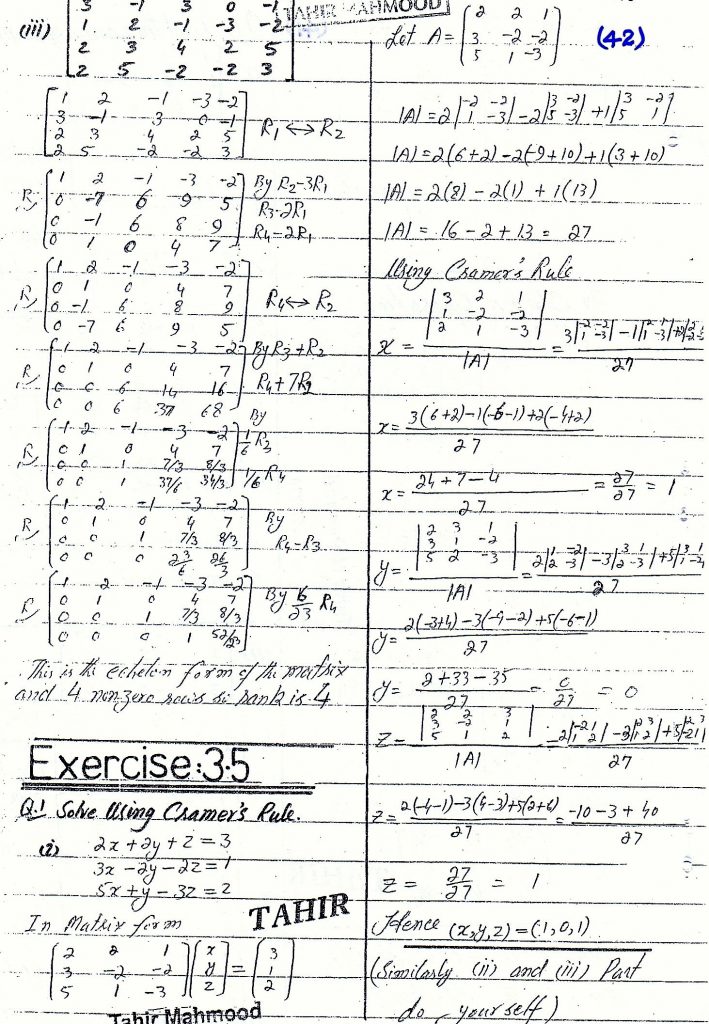 TAHIR MAHMOOD
(iii)
3 -1 3 0 -1
1 2 -1 -3 -2
2 3 4 2 5
2 5 -2 -2 3
1 2 -1 -3 -2
3 -1 3 0 -1
2 3 4 2 5
2 5 -2 -2 3
R1 ↔ R2
R
1 2 -1 -3 -2
0 -7 6 9 5
0 -1 6 8 9
0 1 0 4 7
By R2-3R1
R3-2R1
R4-2R1
R
1 2 -1 -3 -2
0 1 0 4 7
0 -1 6 8 9
0 -7 6 9 5
R4 ↔ R2
R
1 2 -1 -3 -2
0 1 0 4 7
0 0 6 14 16
0 0 6 37 68
By R3+R2
R4+7R2
R
1 2 -1 -3 -2
0 1 0 4 7
0 0 1 7/3 8/3
0 0 1 37/6 34/3
By
1/6 R3
1/6 R4
R
1 2 -1 -3 -2
0 1 0 4 7
0 0 1 7/3 8/3
0 0 0 23/6 26/3
By
R4-R3
R
1 2 -1 -3 -2
0 1 0 4 7
0 0 1 7/3 8/3
0 0 0 1 52/23
By 6/23 R4
This is the echelon form of the matrix
and 4 non-zero rows so rank is 4
Exercise:3.5
Q.1 Solve Using Cramer's Rule.
(i) 2x+2y+z=3
3x-2y-2z=1
5x+y-3z=2
In Matrix form
TAHIR
2 2 1 x 3
3 -2 -2 y = 1
5 1 -3 z 2
Tahir Mahmood
Let A=
2 2 1
3 -2 -2
5 1 -3
(42)
|A|=2|-2 -2 / 1 -3|-2|3 -2 / 5 -3|+1|3 -2 / 5 1|
|A|=2(6+2)-2(-9+10)+1(3+10)
|A|=2(8)-2(1)+1(13)
|A|=16-2+13=27
Using Cramer's Rule
3 2 1
1 -2 -2
2 1 -3
x= |A| = 27
x= 3(6+2)-1(-6-1)+2(-4+2) / 27
x= 24+7-4 / 27 = 27/27 = 1
2 3 1
3 1 -2
5 2 -3
y= |A| = 2|1 -2 / 2 -3|-3|3 1 / 2 -3|+5|3 1 / 1 -2| / 27
y= 2(-3+4)-3(-9-2)+5(-6-1) / 27
y= 2+33-35 / 27 = 0/27 = 0
2 2 3
3 -2 1
5 1 2
z= |A| = 2|-2 1 / 1 2|-3|2 3 / 1 2|+5|2 3 / -2 1| / 27
z= 2(-4-1)-3(4-3)+5(2+6) / 27 = -10-3+40 / 27
z= 27/27 = 1
Hence (x,y,z)=(1,0,1)
(Similarly (ii) and (iii) Part
do yourself)